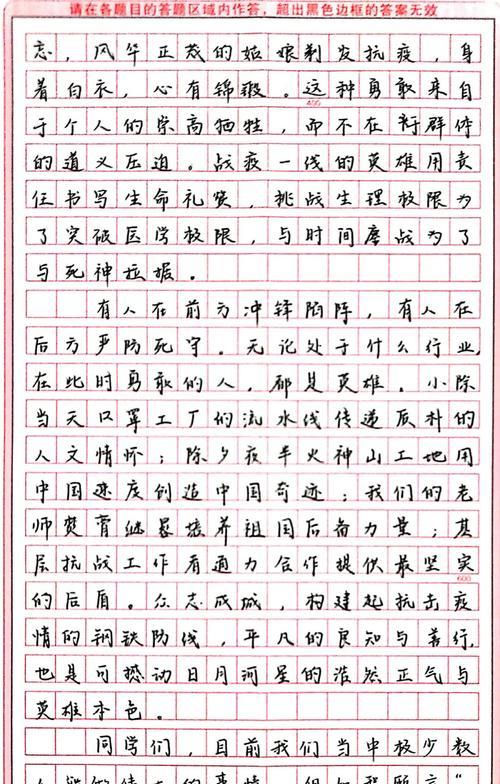 请在各题目的答题区域内作答，超出黑色边框的答案无效
忘，风华正茂的姑娘剃发抗疫，身
着白衣，心有锦缎。这种勇敢来自
400
于个人的崇高牺牲，而不在于群体
的道义压迫。战疫一线的英雄用责
任书写生命礼赞，挑战生理极限为
了突破医学极限，与时间鏖战为了
与死神拉据。
有人在前方冲锋陷阵，有人在
后方严防死守。无论处于什么行业，
在此时勇敢的人，都是英雄。小除
当天口罩工厂的流水线传递质朴的
人文情怀；除夕夜半火神山工地用
中国速度创造中国奇迹；我们的老
师焚膏继晷培养祖国后备力量；基
层抗战工作者通力合作提供最坚实
600
的后盾。众志成城，构建起抗击疫
情的钢铁防线，平凡的良知与善行，
也是可撼动日月河星的浩然正气与
英雄本色。
同学们，目前我们当中极少数